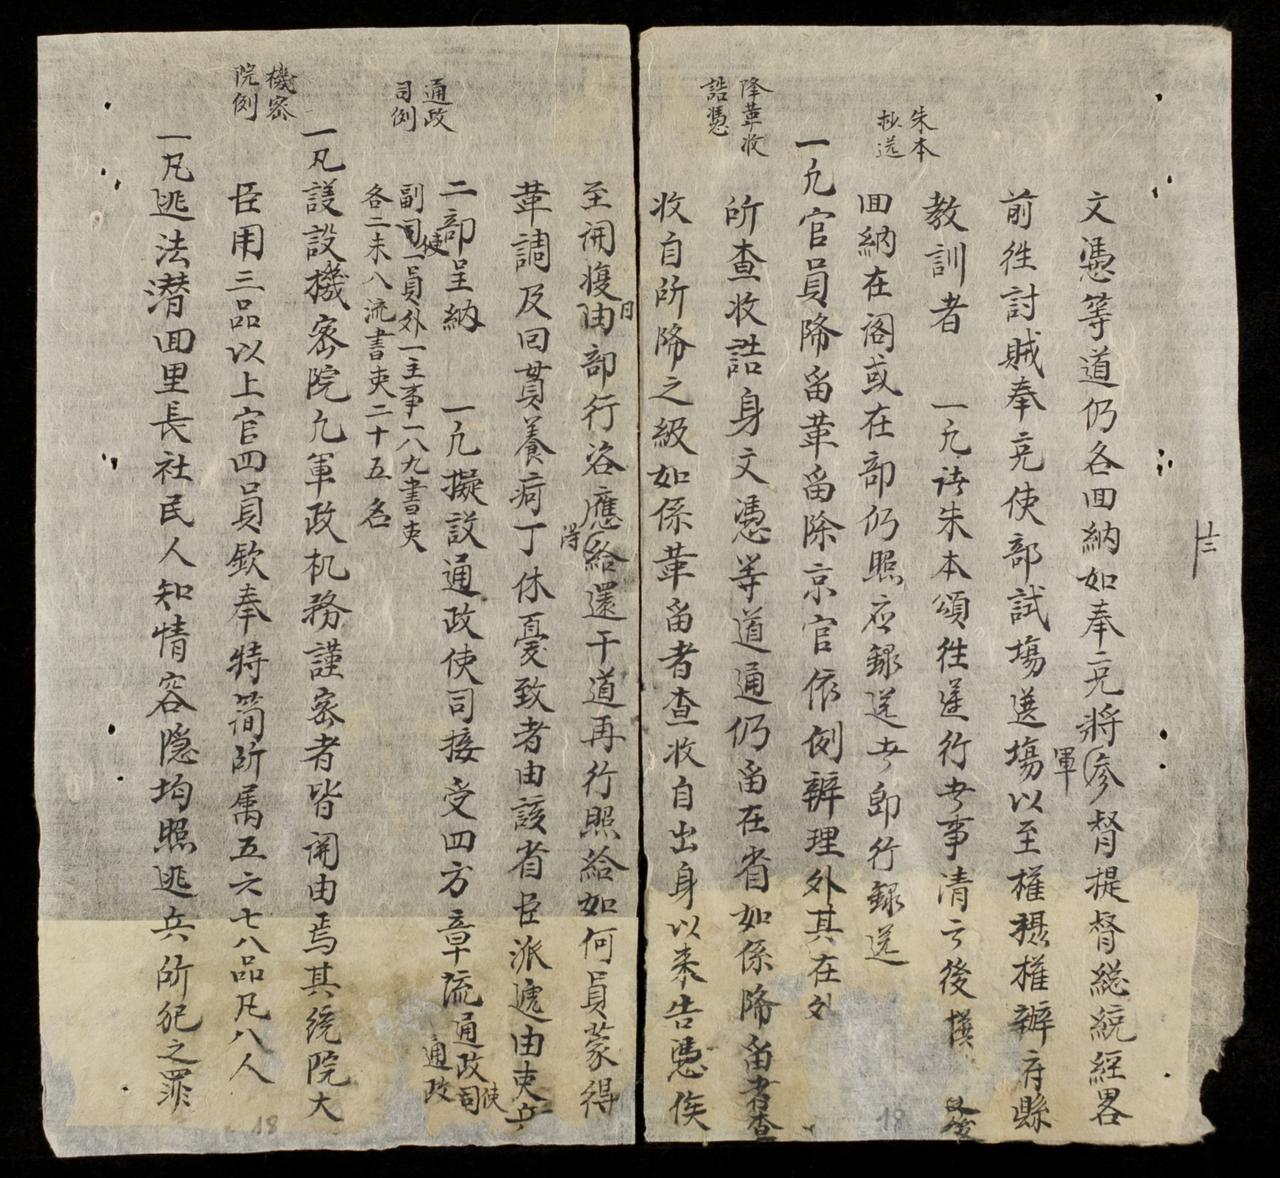 十三
文憑等道仍各回納如奉充將軍參督提督總統經畧
前徃討賊奉充使部試塲送塲以至權攝權辦府縣
朱本
抄送
教訓者 一凡諸朱本頒徃遵行者事清言後撰
回納在阁或在部仍照应錄送者即行錄送
降革收
誥憑
一凡官員降畱革畱除京官依例辦理外其在外
所查收誥身文憑等道通仍畱在省如係降畱者查
收自所降之級如係革畱者查收自出身以来告憑俟
至開復日由部行咨應得給還干道再行照給如何員蒙得
革調及回貫養病丁休憂致者由該省臣派遞由吏兵
通政
司例
二部呈納 一凡擬設通政使司接受四方章流通政使司通政
副使一員外一主事一八九書吏
各二未八流書吏二十五名
機密
院例
一凡議設機密院凡軍政机務謹密者皆開由焉其統院大
臣用三品以上官四員欽奉特简所属五六七八品凡八人
一凡逃法潜回里長社民人知情容隐均照逃兵所犯之罪
18
18